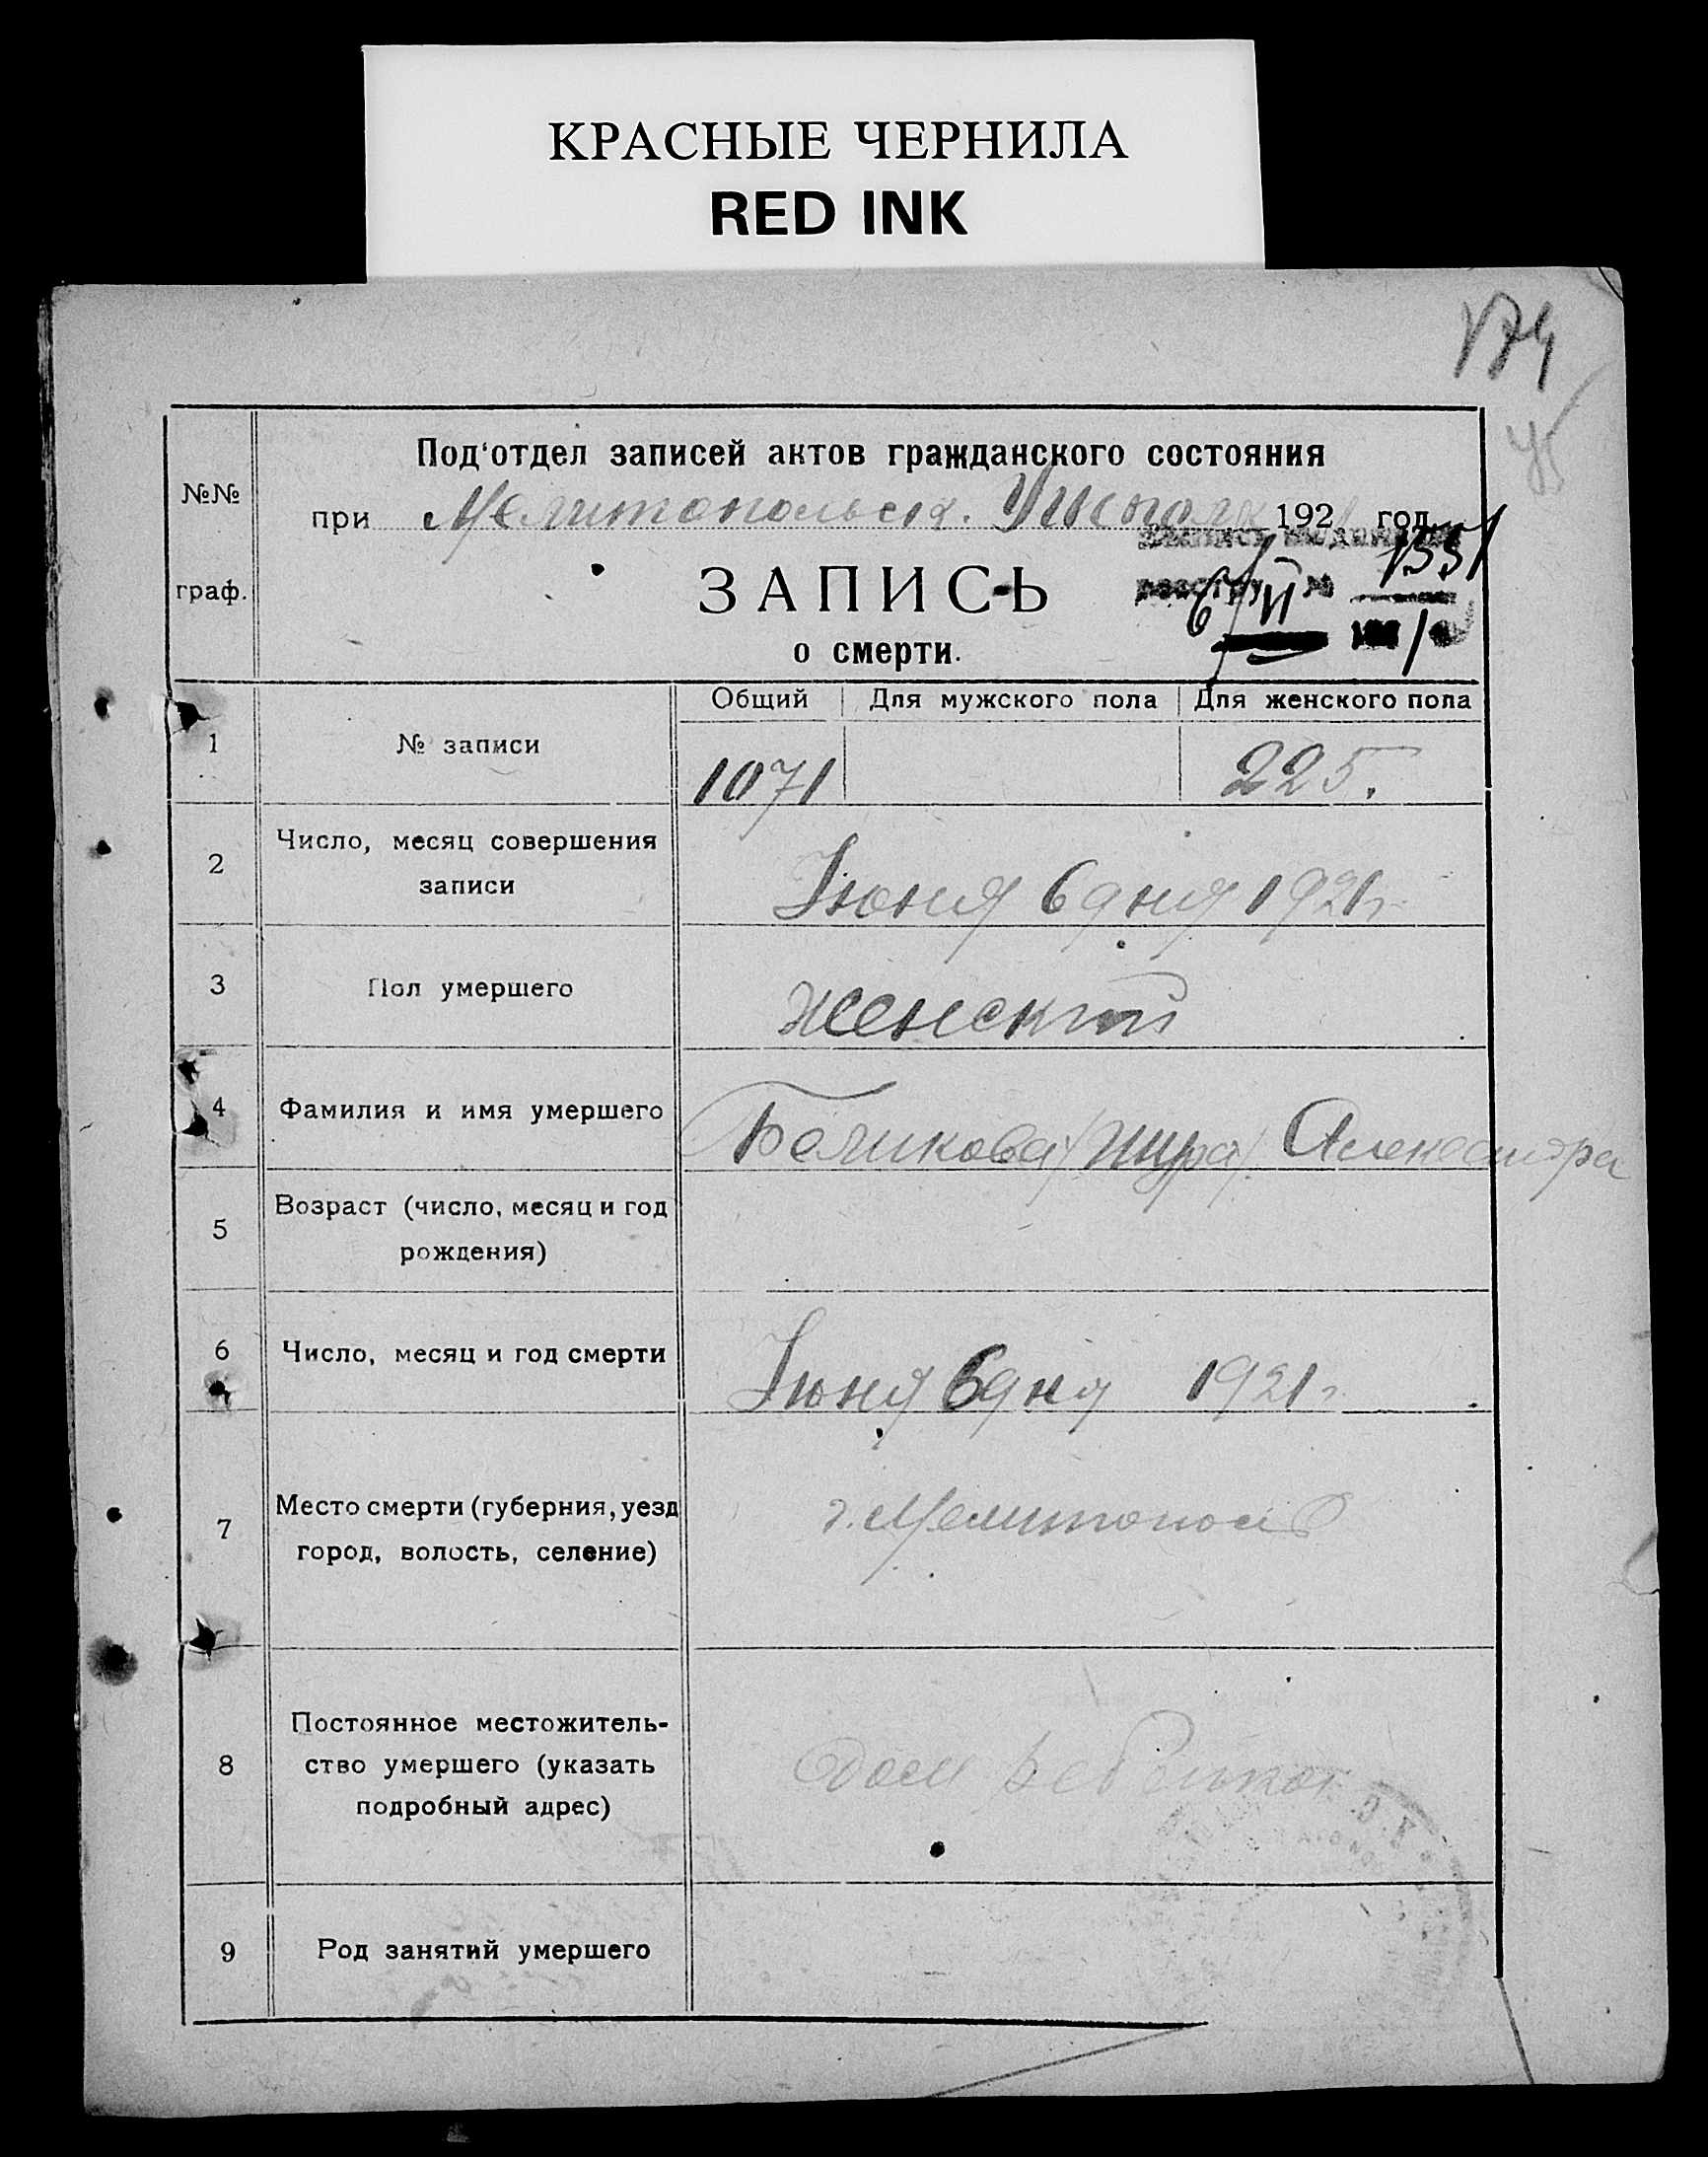 КРАСНЫЕ ЧЕРНИЛА
RED INK
174
45
№№
граф.
Под'отдел записей актов гражданского состояния
при Мелитопольск. 192 год
ЗАПИСЬ
1551
6/VI №
о смерти.
Общий Для мужского пола Для женского пола
1 № записи 1071 225.
2 Число, месяц совершения
записи Июня 6 дня 1921 г.
3 Пол умершего женский
4 Фамилия и имя умершего Беликова /Шура/ Александра
5 Возраст (число, месяц и год
рождения)
6 Число, месяц и год смерти Июня 6 дня 1921 г.
7 Место смерти (губерния, уезд
город, волость, селение) г. Мелитополь
8 Постоянное местожитель-
ство умершего (указать
подробный адрес) Дом ребенка
9 Род занятий умершего